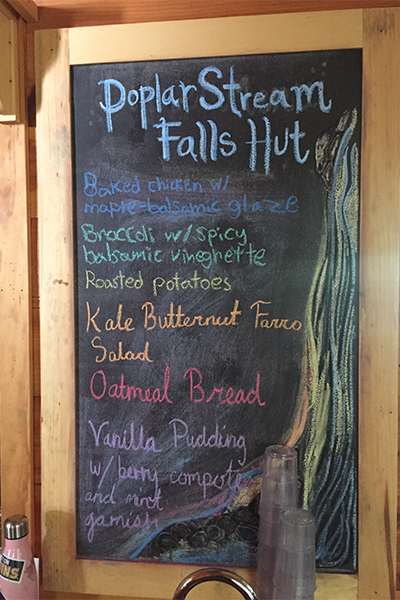 Poplar Stream
Falls Hut
Baked chicken w/
maple-balsamic glaze
Broccoli w/ spicy
balsamic vineghette
Roasted potatoes
Kale Butternut Farro
Salad
Oatmeal Bread
Vanilla Pudding
w/ berry compote
and mint
garnish